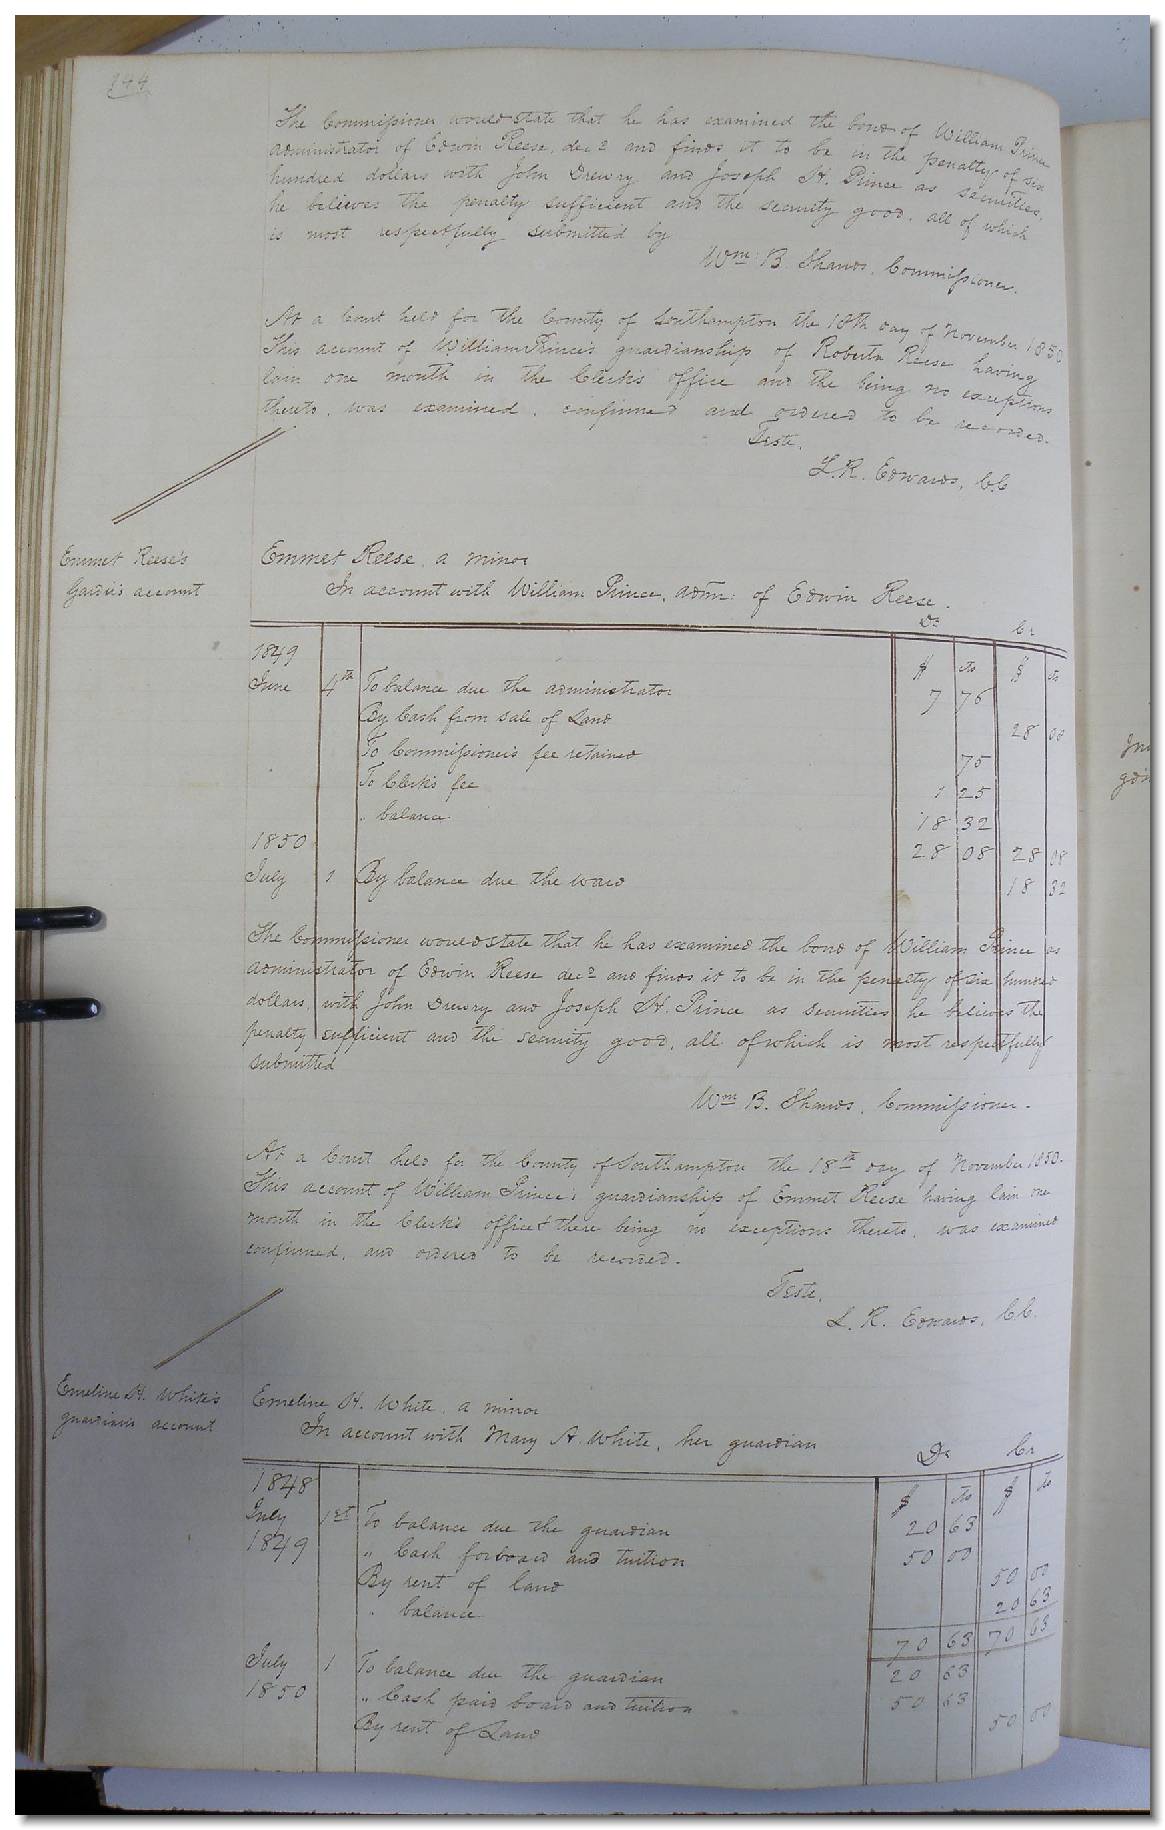 344
The Commissioner would state that he has examined the bond of William Prince
administrator of Edwin Reese, decd and finds it to be in the penalty of six
hundred dollars with John Drewry and Joseph H. Prince as securities,
he believes the penalty sufficient and the security good, all of which
is most respectfully submitted by
Wm B. Shands, Commissioner.
At a Court held for the County of Southampton the 18th day of November 1850
This account of William Prince's guardianship of Roberta Reese having
lain one month in the Clerk's office and the being no exceptions
thereto, was examined, confirmed and ordered to be recorded.
Teste,
L. R. Edwards, C.C
Emmet Reese's
Gardn's account
Emmet Reese, a minor
In account with William Prince, adm: of Edwin Reese.
Dr Cr
1849 $ cts $ cts
June 4th To balance due the administrator 7 76
By Cash from sale of Land 28 08
To Commissioner's fee retained 75
To Clerk's fee 1 25
" balance 18 32
1850 28 08 28 08
July 1 By balance due the ward 18 32
The Commissioner would state that he has examined the bond of William Prince as
administrator of Edwin Reese decd and finds it to be in the penalty of six hundred
dollars, with John Drewry and Joseph H. Prince as securities he believes the
penalty sufficient and the security good, all of which is most respectfully
submitted
Wm B. Shands, Commissioner.
At a Court held for the County of Southampton the 18th day of November 1850.
This account of William Prince's guardianship of Emmet Reese having lain one
month in the Clerk's office & there being no exceptions thereto, was examined
confirmed, and ordered to be recorded.
Teste,
L. R. Edwards, C.C.
Emeline H. White's
guardian's account
Emeline H. White, a minor
In account with Mary A. White, her guardian
Dr Cr
1848 $ cts $ cts
July 1st To balance due the guardian 20 63
1849 " Cash for board and tuition 50 00
By rent of land 50 00
" balance 20 63
70 63 70 63
July 1 To balance due the guardian 20 63
1850 " Cash paid board and tuition 50 63
By rent of Land 50 00